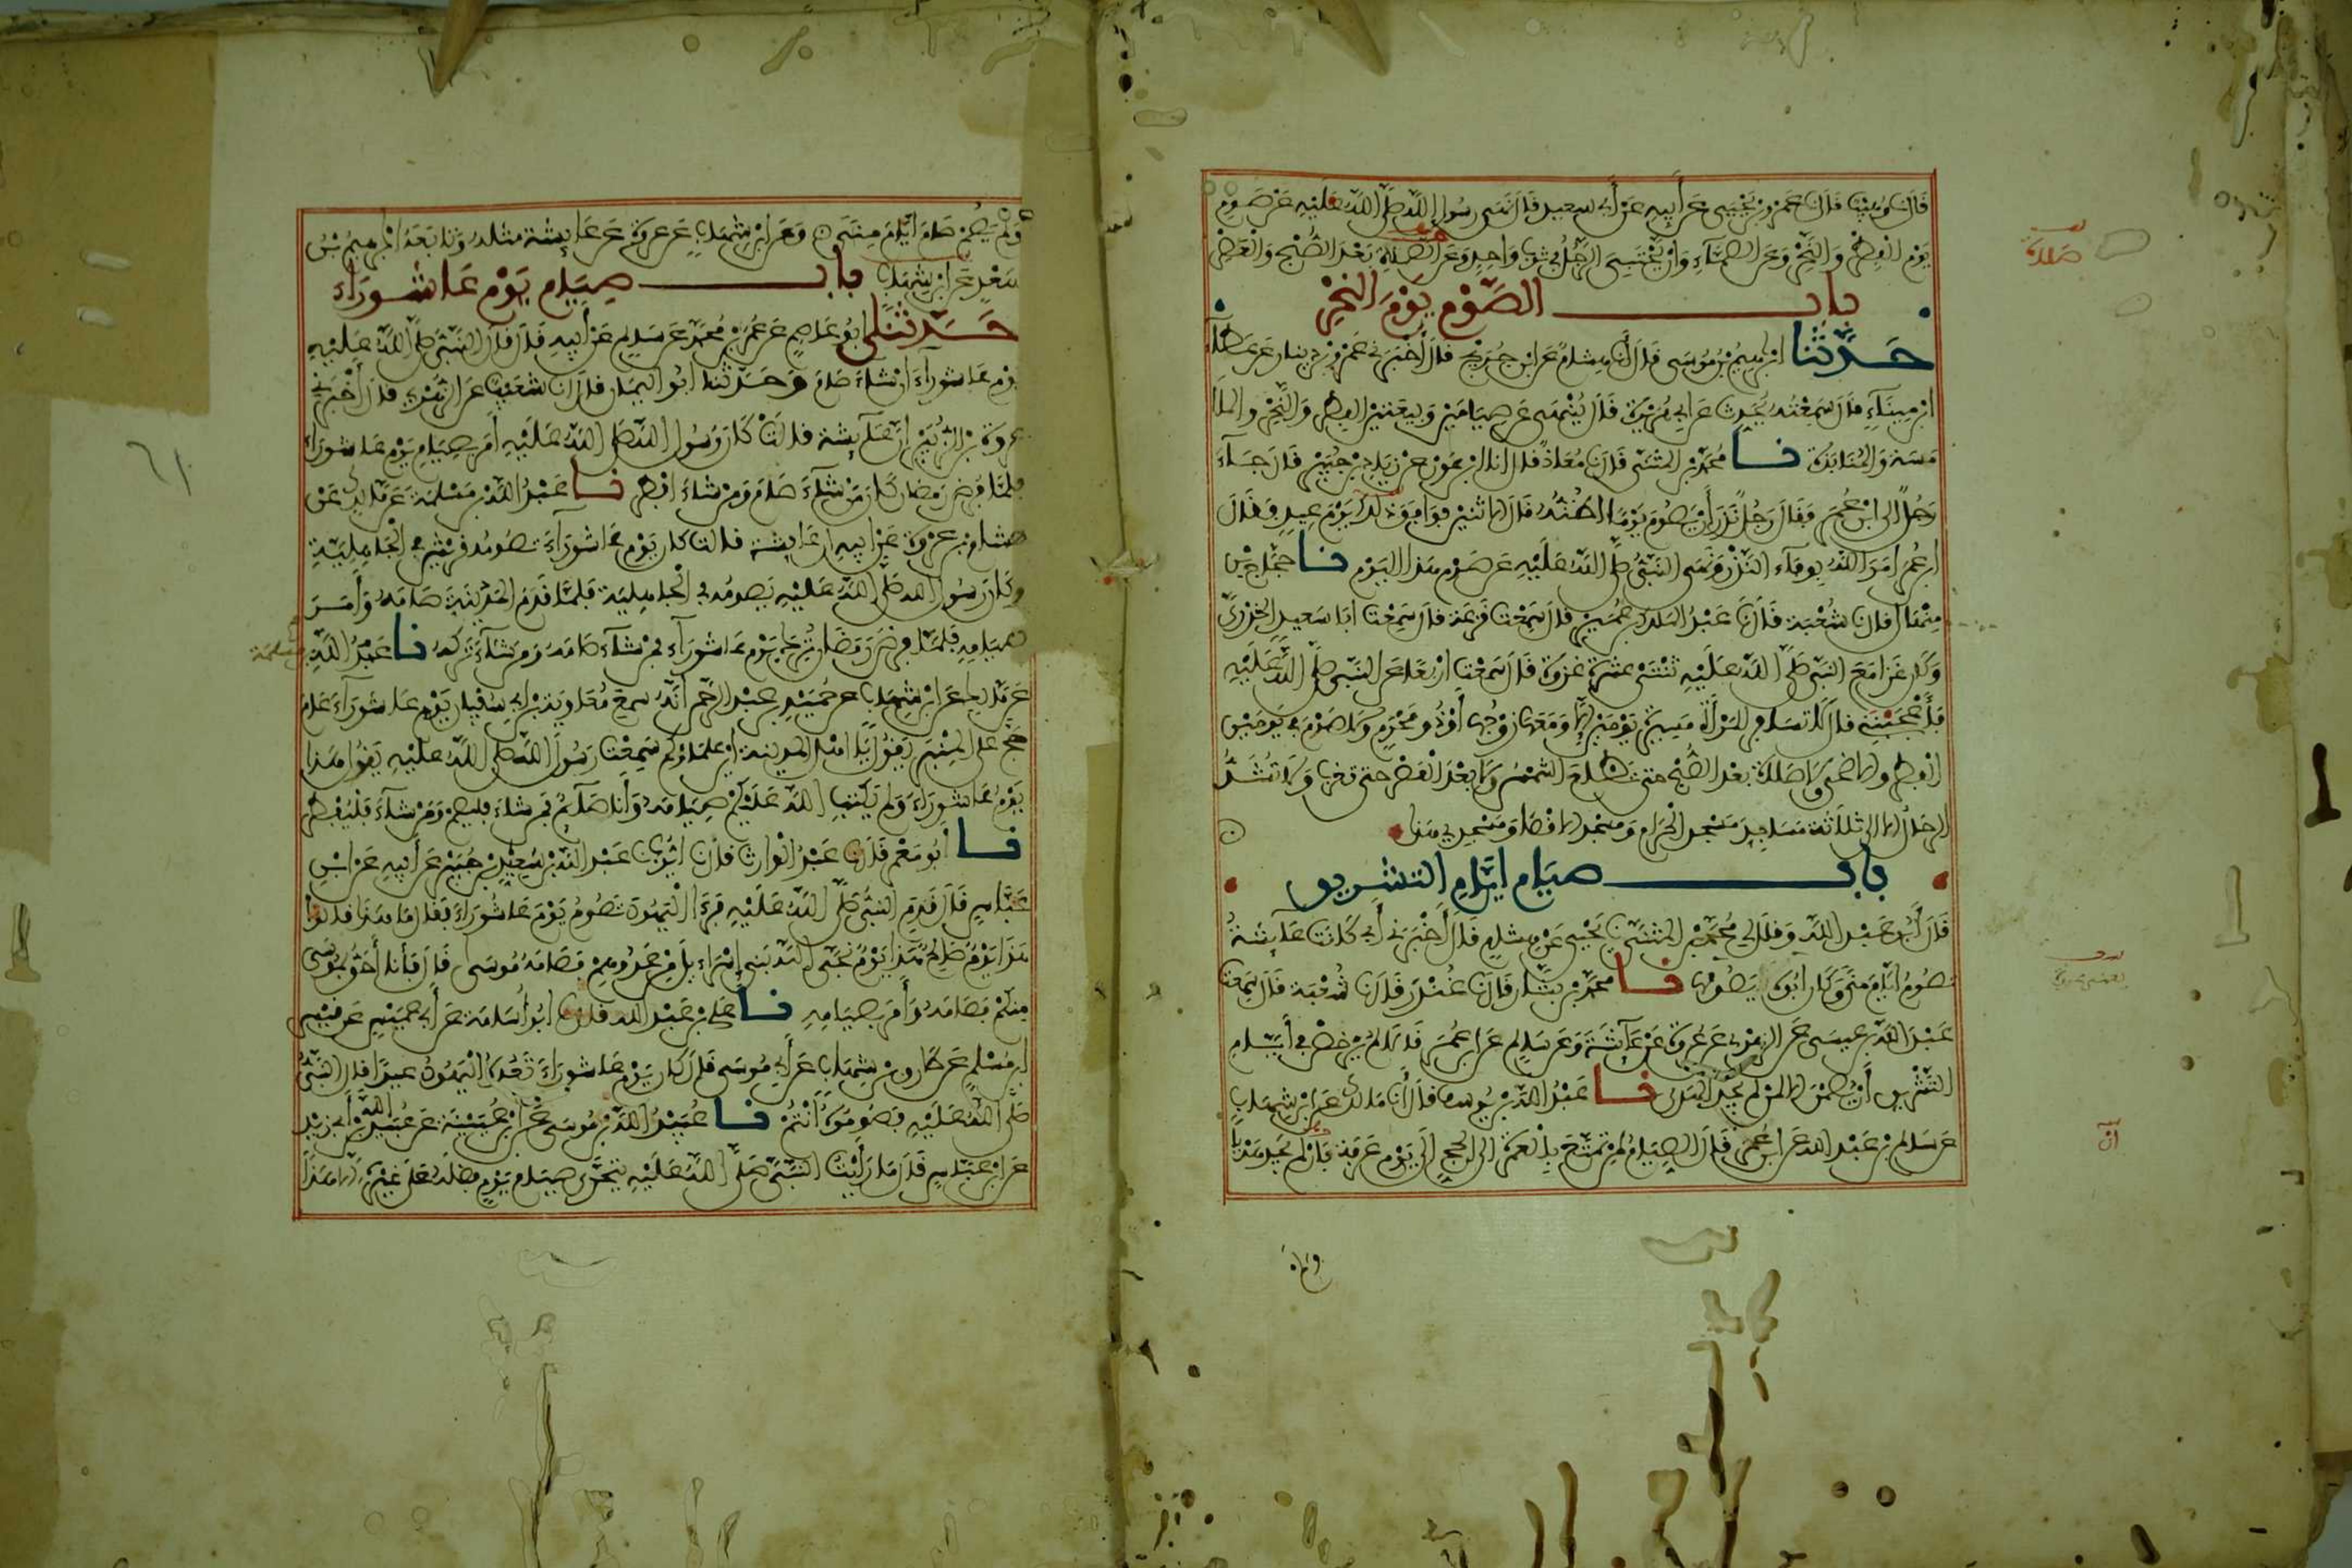 قال نا وهيب قال نا عمرو بن يحيى عن أبيه عن أبي سعيد قال نهى رسول الله صلى الله عليه عن صوم
يوم الفطر والنحر وعن الصماء وان يحتبي الرجل في ثوب واحد وعن الصلاة بعد الصبح والعصر
صلاة
باب الصوم يوم النحر
حدثنا ابراهيم بن موسى قال انا هشام عن ابن جريج قال أخبرني عمرو بن دينار عن عطاء
ابن ميناء قال سمعته يحدث عن ابي هريرة قال ينهى عن صيامين وبيعتين الفطر والنحر والملا
مسة والمنابذة نا محمد بن المثنى قال نا معاذ قال انا ابن عون عن زياد بن جبير قال جاء
رجل الى ابن عمر فقال رجل نذر أن يصوم يوما اظنه قال الاثنين فوافق ذلك يوم عيد فقال
ابن عمر امر الله بوفاء النذر ونهى النبي صلى الله عليه عن صوم هذا اليوم نا حجاج بن
منهال قال نا شعبة قال نا عبد الملك بن عمير قال سمعت قزعة قال سمعت ابا سعيد الخدري
وكان غزا مع النبي صلى الله عليه ثنتي عشرة غزوة قال سمعت اربعا عن النبي صلى الله عليه
فأعجبنني قال لا تسافر المرأة مسيرة يومين إلا ومعها زوجها أو ذو محرم ولا صوم في يومين
الفطر والاضحى ولا صلاة بعد الصبح حتى تطلع الشمس ولا بعد العصر حتى تغرب ولا تشد
الرحال الا الى ثلاثة مساجد مسجد الحرام ومسجد الاقصا ومسجدي هذا
باب صيام ايام التشريق
قال أبو عبد الله وقال لي محمد بن المثنى نا يحيى عن هشام قال أخبرني أبي كانت عائشة
تصوم ايام منى وكان ابوه يصومها نا محمد بن بشار قال نا غندر قال نا شعبة قال سمعت
عبد الله بن عيسى عن الزهري عن عروة عن عائشة وعن سالم عن ابن عمر قالا لم يرخص في أيام
التشريق أن يصمن الا لمن لم يجد الهدي نا عبد الله بن يوسف قال أنا مالك عن ابن شهاب
أن
عن سالم بن عبد الله عن ابن عمر قال الصيام لمن تمتع بالعمرة الى الحج إلى يوم عرفة فان لم يجد هديا
ولم
ولم يصم صام ايام منى وعن ابن شهاب عن عروة عن عائشة مثله وتابعه ابراهيم بن
سعد عن ابن شهاب باب صيام يوم عاشوراء
حدثنا ابو عاصم عن عمر بن محمد عن سالم عن أبيه قال قال النبي صلى الله عليه
يوم عاشوراء ان شاء صام وحدثنا ابو اليمان قال انا شعيب عن الزهري قال أخبرني
عروة بن الزبير ان عائشة قالت كان رسول الله صلى الله عليه أمر بصيام يوم عاشوراء
فلما فرض رمضان كان من شاء صام ومن شاء افطر نا عبد الله بن مسلمة عن مالك عن
هشام بن عروة عن ابيه ان عائشة قالت كان يوم عاشوراء تصومه قريش في الجاهلية
وكان رسول الله صلى الله عليه يصومه في الجاهلية فلما قدم المدينة صامه وأمر
بصيامه فلما فرض رمضان ترك يوم عاشوراء فمن شاء صامه ومن شاء تركه نا عبد الله
بن مسلمة
عن مالك عن ابن شهاب عن حميد بن عبد الرحمن أنه سمع معاوية بن ابي سفيان يوم عاشوراء عام
حج على المنبر يقول يا اهل المدينة اين علماؤكم سمعت رسول الله صلى الله عليه يقول هذا
يوم عاشوراء ولم يكتب الله عليكم صيامه وأنا صائم فمن شاء فليصم ومن شاء فليفطر
نا أبو معمر قال نا عبد الوارث قال نا ايوب نا عبد الله بن سعيد بن جبير عن أبيه عن ابن
عباس قال قدم النبي صلى الله عليه فرءا اليهود تصوم يوم عاشوراء فقال ما هذا قالوا
هذا يوم صالح هذا يوم نجى الله بني إسراءيل من عدوهم فصامه موسى قال فأنا أحق بموسى
منكم فصامه وأمر بصيامه نا علي بن عبد الله قال نا ابو أسامة عن أبي عميس عن قيس
ابن مسلم عن طارق بن شهاب عن أبي موسى قال كان يوم عاشوراء تعده اليهود عيدا قال النبي
صلى الله عليه فصوموه أنتم نا عبيد الله بن موسى عن ابن عيينة عن عبيد الله بن أبي يزيد
عن ابن عباس قال ما رأيت النبي صلى الله عليه يتحرى صيام يوم فضله على غيره الا هذا